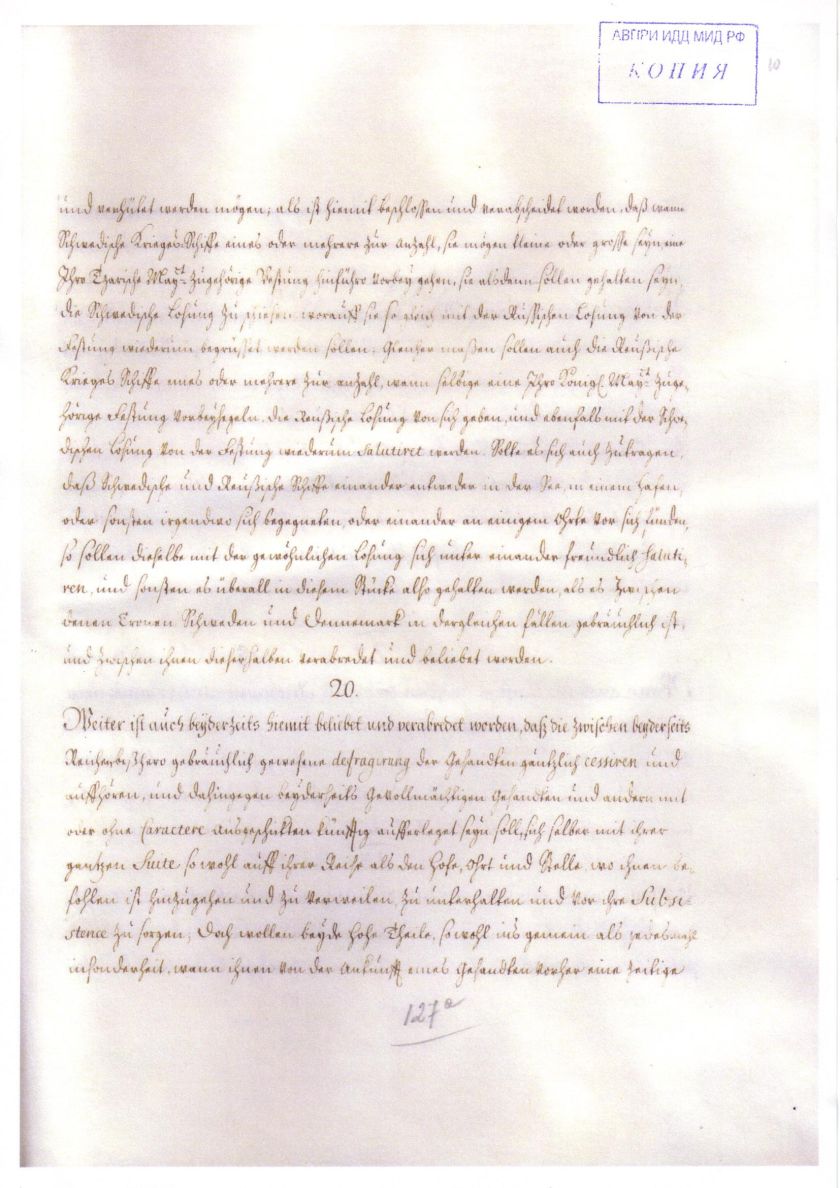 АВПРИ ИДД МИД РФ
КОПИЯ
10
und verhütet werden mögen; als ist hiemit beschlossen und verabscheidet worden, daß wann
Schwedische Krieges-Schiffe eines oder mehrere zur anzahl, sie mögen kleine oder grosse seyn eine
Ihro Tzarische Mayt. zugehörige Vestung hinführo vorbey gehen, sie alsdann sollen gehalten seyn,
die Schwedische Losung zu schießen worauff sie so gleich mit der Russischen Losung von der
Festung wiederum begrüsset werden sollen; Gleicher maßen sollen auch die Reußische
Krieges Schiffe eines oder mehrere zur anzahl, wann selbige eine Ihro Königl. Mayt. zuge-
hörige Festung vorbeysegeln, die Reußische Losung von sich geben, und ebenfals mit der Schwe-
dischen Losung von der Festung wiederum Salutiret werden. Solte es sich auch zutragen,
daß Schwedische und Reußische Schiffe einander entweder in der See, in einem Hafen,
oder sonsten irgendwo sich begegneten, oder einander an einigem Ohrte vor sich fünden,
so sollen dieselbe mit der gewöhnlichen Losung sich unter einander freundlich Saluti-
ren, und sonsten es überall in diesem Stücke also gehalten werden, als es zwischen
denen Cronen Schweden und Dennemark in dergleichen fällen gebräuchlich ist,
und zwischen ihnen dieserhalben verabredet und beliebet worden.
20.
Weiter ist auch beyderseits hiemit beliebet und verabredet worden, daß die zwischen beyderseits
Reichen bißhero gebräuchlich gewesene defragirung der Gesandten gäntzlich cessiren und
auffhören, und dahingegen beyderseits Gevollmächtigen Gesandten und andern mit
oder ohne Caractere Ausgeschikten künfftig aufferleget seyn soll, sich selber mit ihrer
gantzen Suite so wohl auff ihrer Reise als den Hofe, Ohrt und Stelle, wo ihnen be-
fohlen ist hinzugehen und zu verweilen, zu unterhalten und vor ihre Subsi-
stence zu sorgen; Doch wollen beyde hohe Theile, so wohl ins gemein als jedesmahl
insonderheit, wann ihnen von der Ankunfft eines Gesandten vorher eine zeitige
127a